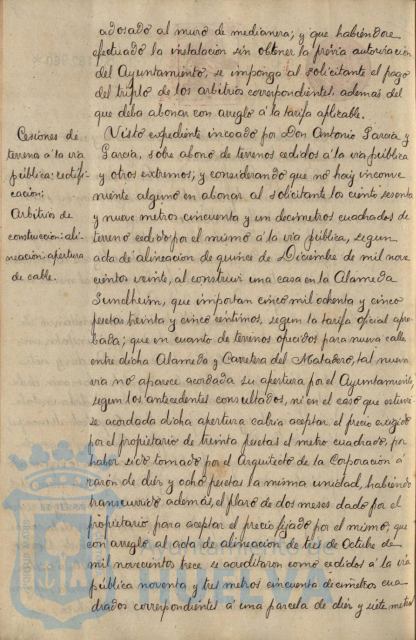 adosado al muro de medianera; y que habiéndose
efectuado la instalación sin obtener la previa autorización
del Ayuntamiento, se imponga al solicitante el pago
del triplo de los arbitrios correspondientes, además del
que deba abonar con arreglo á la tarifa aplicable.
Cesiones de
terreno á la vía
pública: rectifi-
cación:
Arbitrios de
construcción: ali-
neación: apertura
de calle.
Visto expediente incoado por Don Antonio García y
García, sobre abono de terrenos cedidos á la vía pública
y otros extremos; y considerando que no hay inconve
niente alguno en abonar al solicitante los ciento sesenta
y nueve metros cincuenta y un decímetros cuadrados de
terreno cedido por el mismo á la vía pública, según
acta de alineación de quince de Diciembre de mil nove
cientos veinte, al construir una casa en la Alameda
Sundheim, que importan cinco mil ochenta y cinco
pesetas treinta y cinco céntimos, según la tarifa oficial apro
bada; que en cuanto de terrenos ofrecidos para nueva calle
entre dicha Alameda y Carretera del Matadero, tal nueva
vía no aparece acordada su apertura por el Ayuntamiento
según los antecedentes consultados, ni en el caso que estuvie
se acordada dicha apertura cabría aceptar el precio exigido
por el propietario de treinta pesetas el metro cuadrado, por
haber sido tomado por el Arquitecto de la Corporación á
razón de diez y ocho pesetas la misma unidad, habiendo
transcurrido además, el plazo de dos meses dado por el
propietario para aceptar el precio fijado por el mismo, que
con arreglo al acta de alineación de tres de Octubre de
mil novecientos trece se acreditaron como cedidos á la vía
pública noventa y tres metros cincuenta decímetros cua
drados correspondientes á una parcela de diez y siete metros